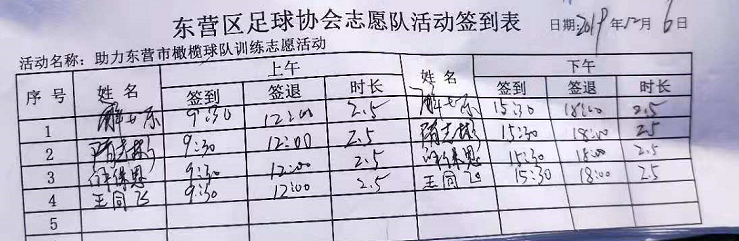 东营区足球协会志愿队活动签到表 日期:2019年12月6日
活动名称：助力东营市橄榄球队训练志愿活动
序号 姓名 上午 姓名 下午
签到 签退 时长 签到 签退 时长
1 9:30 12:00 2.5 15:30 18:00 2.5
2 9:30 12:00 2.5 15:30 18:00 2.5
3 9:30 12:00 2.5 15:30 18:00 2.5
4 王同飞 9:30 12:00 2.5 王同飞 15:30 18:00 2.5
5